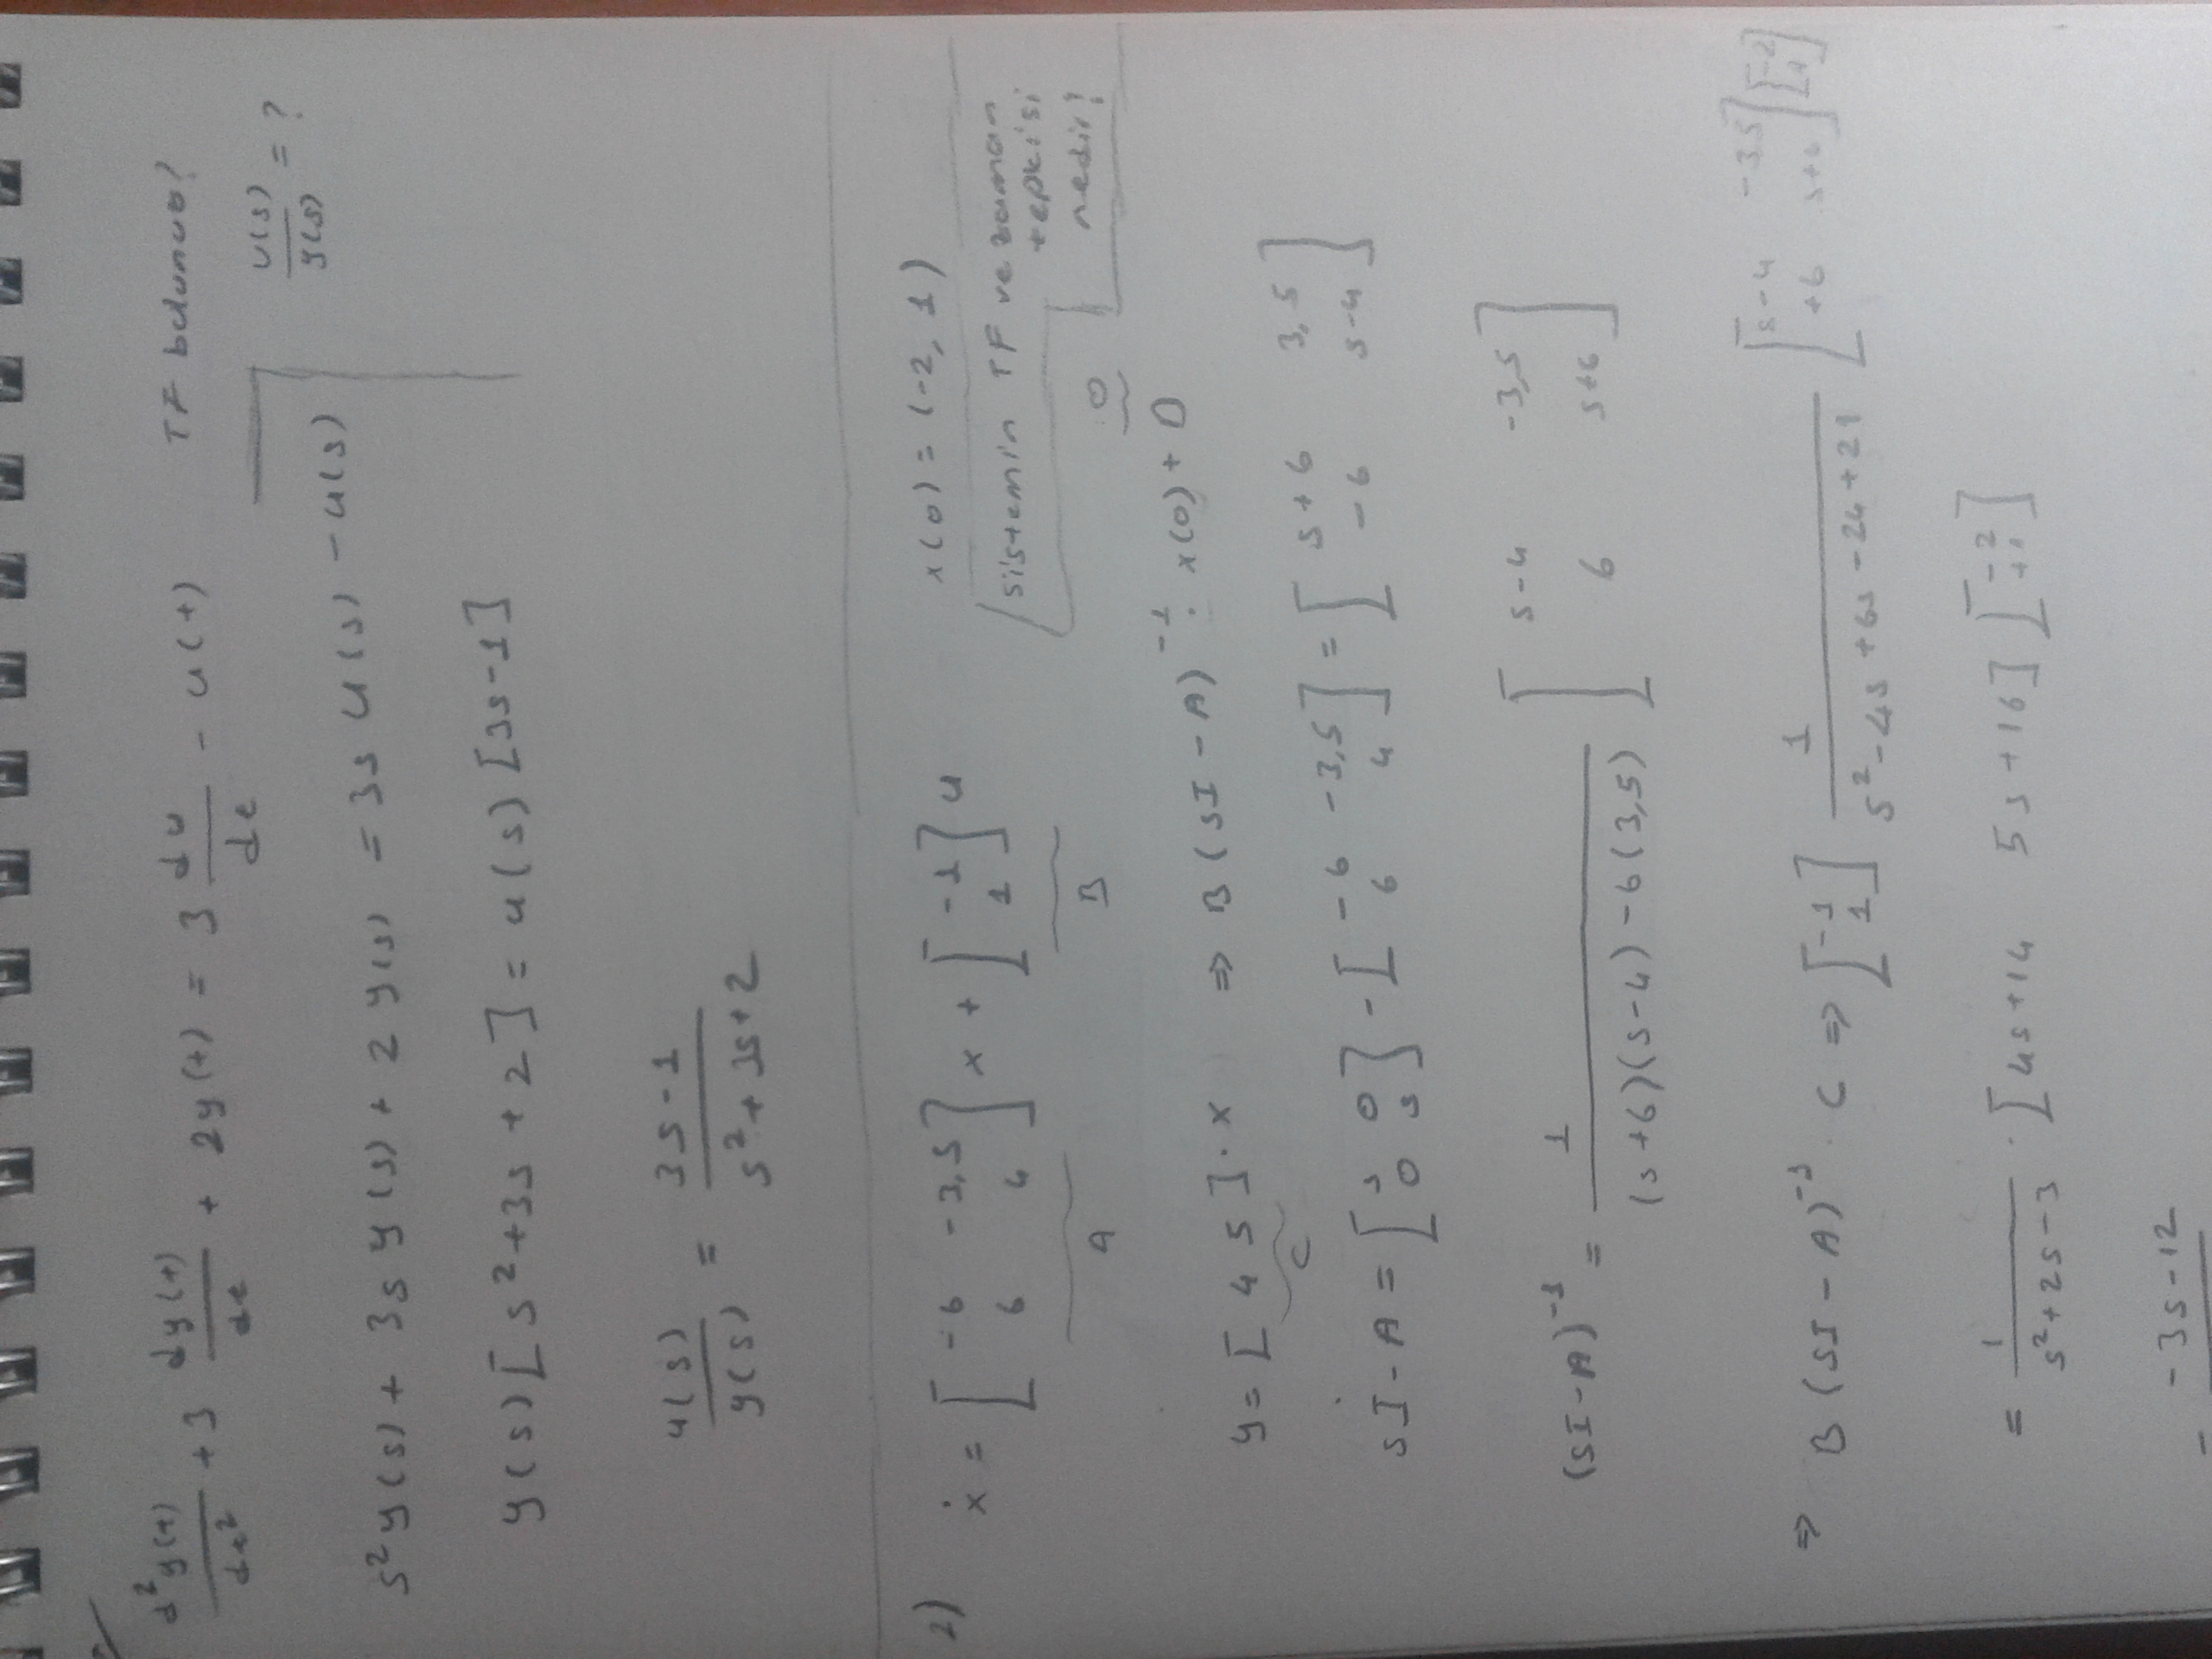 d²y(t)/dt² + 3 dy(t)/dt + 2y(t) = 3 du/dt - u(t)
TF bulunuo?
U(s)/y(s) = ?
s²y(s) + 3s y(s) + 2 y(s) = 3s u(s) - u(s)
y(s)[s²+3s+2] = u(s)[3s-1]
u(s)/y(s) = 3s-1 / s²+3s+2
2) ẋ = [-6 -3,5; 6 4] x + [-1; 1] u
x(0) = (-2, 1)
A B
sistemin TF ve zaman
tepkisi
nedir?
0
y = [4 5] . x ⇒ B(sI-A)⁻¹ . x(0) + D
C
sI-A = [s 0; 0 s] - [-6 -3,5; 6 4] = [s+6 3,5; -6 s-4]
(sI-A)⁻¹ = 1 / (s+6)(s-4) - 6(3,5) [s-4 -3,5; 6 s+6]
⇒ B(sI-A)⁻¹ . C ⇒ [-1; 1] 1 / s²-4s+6s-24+21 [s-4 -3,5; +6 s+6] [-2; 1]
= 1 / s²+2s-3 . [4s+14 5s+16] [-2; +1]
-3s-12